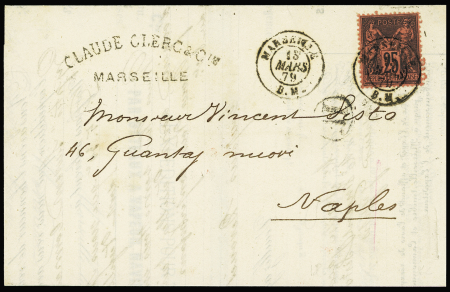 CLAUDE CLERC & Cie
MARSEILLE
MARSEILLE
15
MARS
79
B.M.
POSTE
25
Monsieur Vincent Pisto
46, Guantaj nuovi
Naples